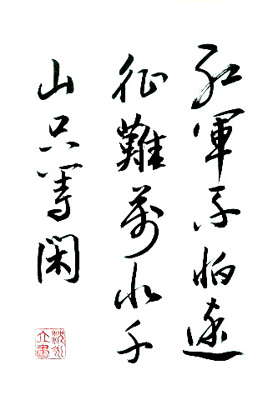 紅軍不怕遠
征難萬水千
山只等閑